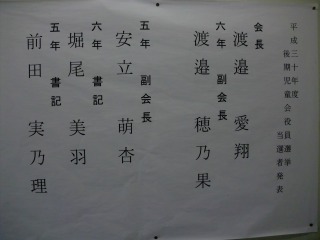 平成三十年度
後期児童会役員選挙
当選者発表
会長
渡邉 愛翔
六年 副会長
渡邉 穂乃果
五年 副会長
安立 萌杏
六年 書記
堀尾 美羽
五年 書記
前田 実乃理